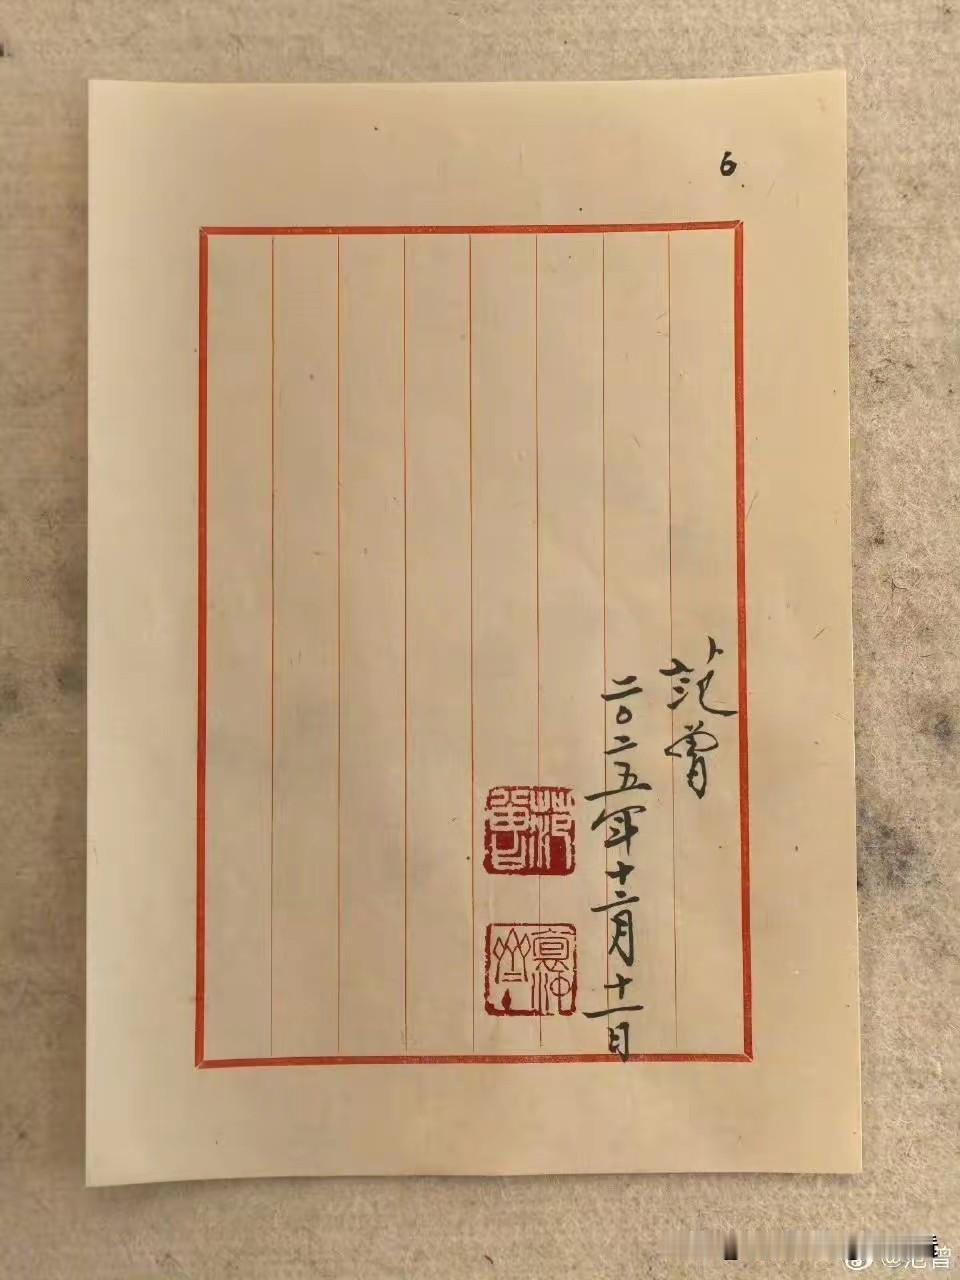 6
范曾
二〇二五年十二月十一日
范曾
@范曾